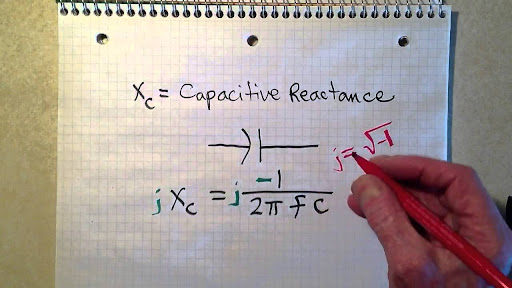 Xc = Capacitive Reactance
j = √-1
j Xc = j -1 / 2π f C